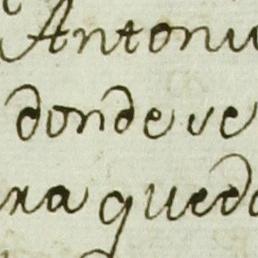 Antoni
donde se
ra qued